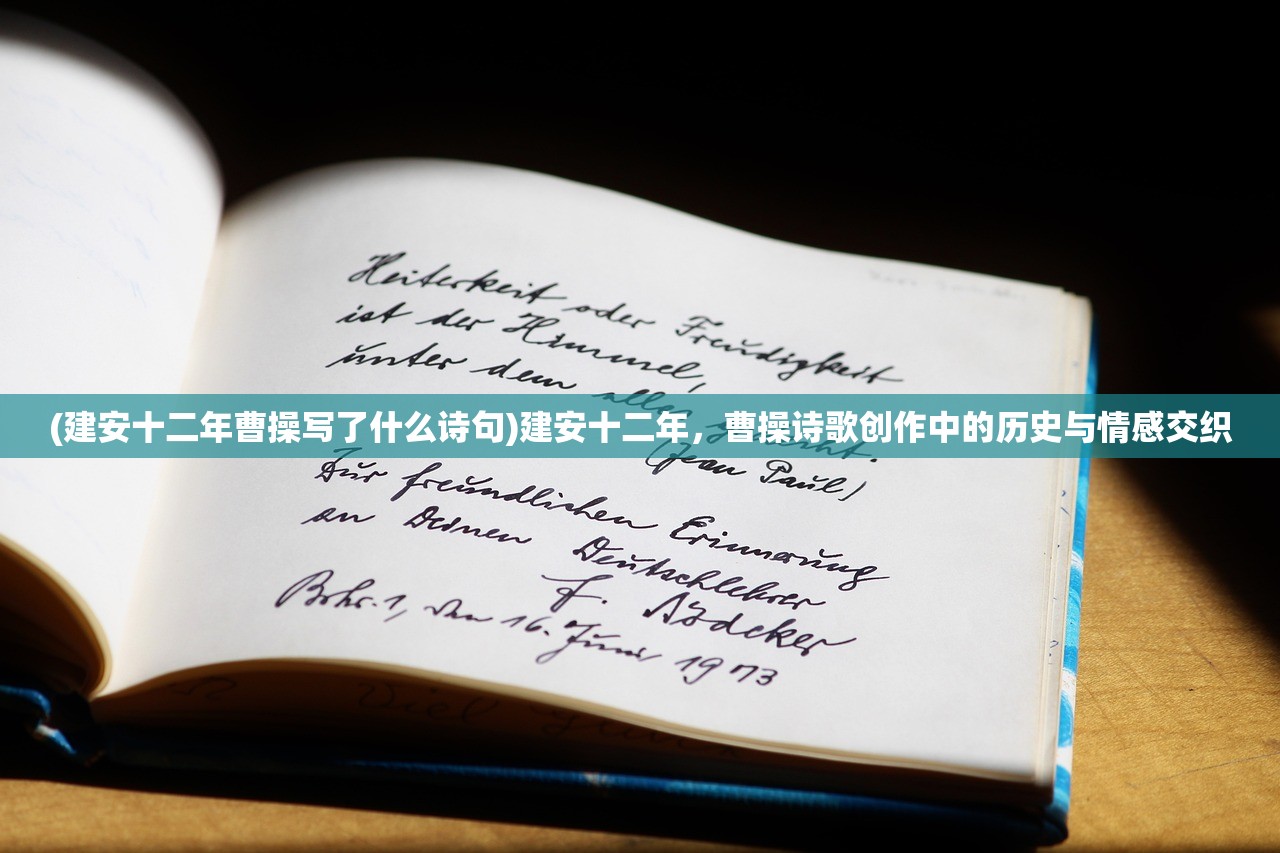 Heiterkeit oder Freudigkeit
ist der Himmel,
unter dem alles
(建安十二年曹操写了什么诗句)建安十二年，曹操诗歌创作中的历史与情感交织
(Jean Paul)
Zur freundlichen Erinnerung
an Deinen Deutschlehrer
F.
Bohr. 1, den 16. Juni 1973